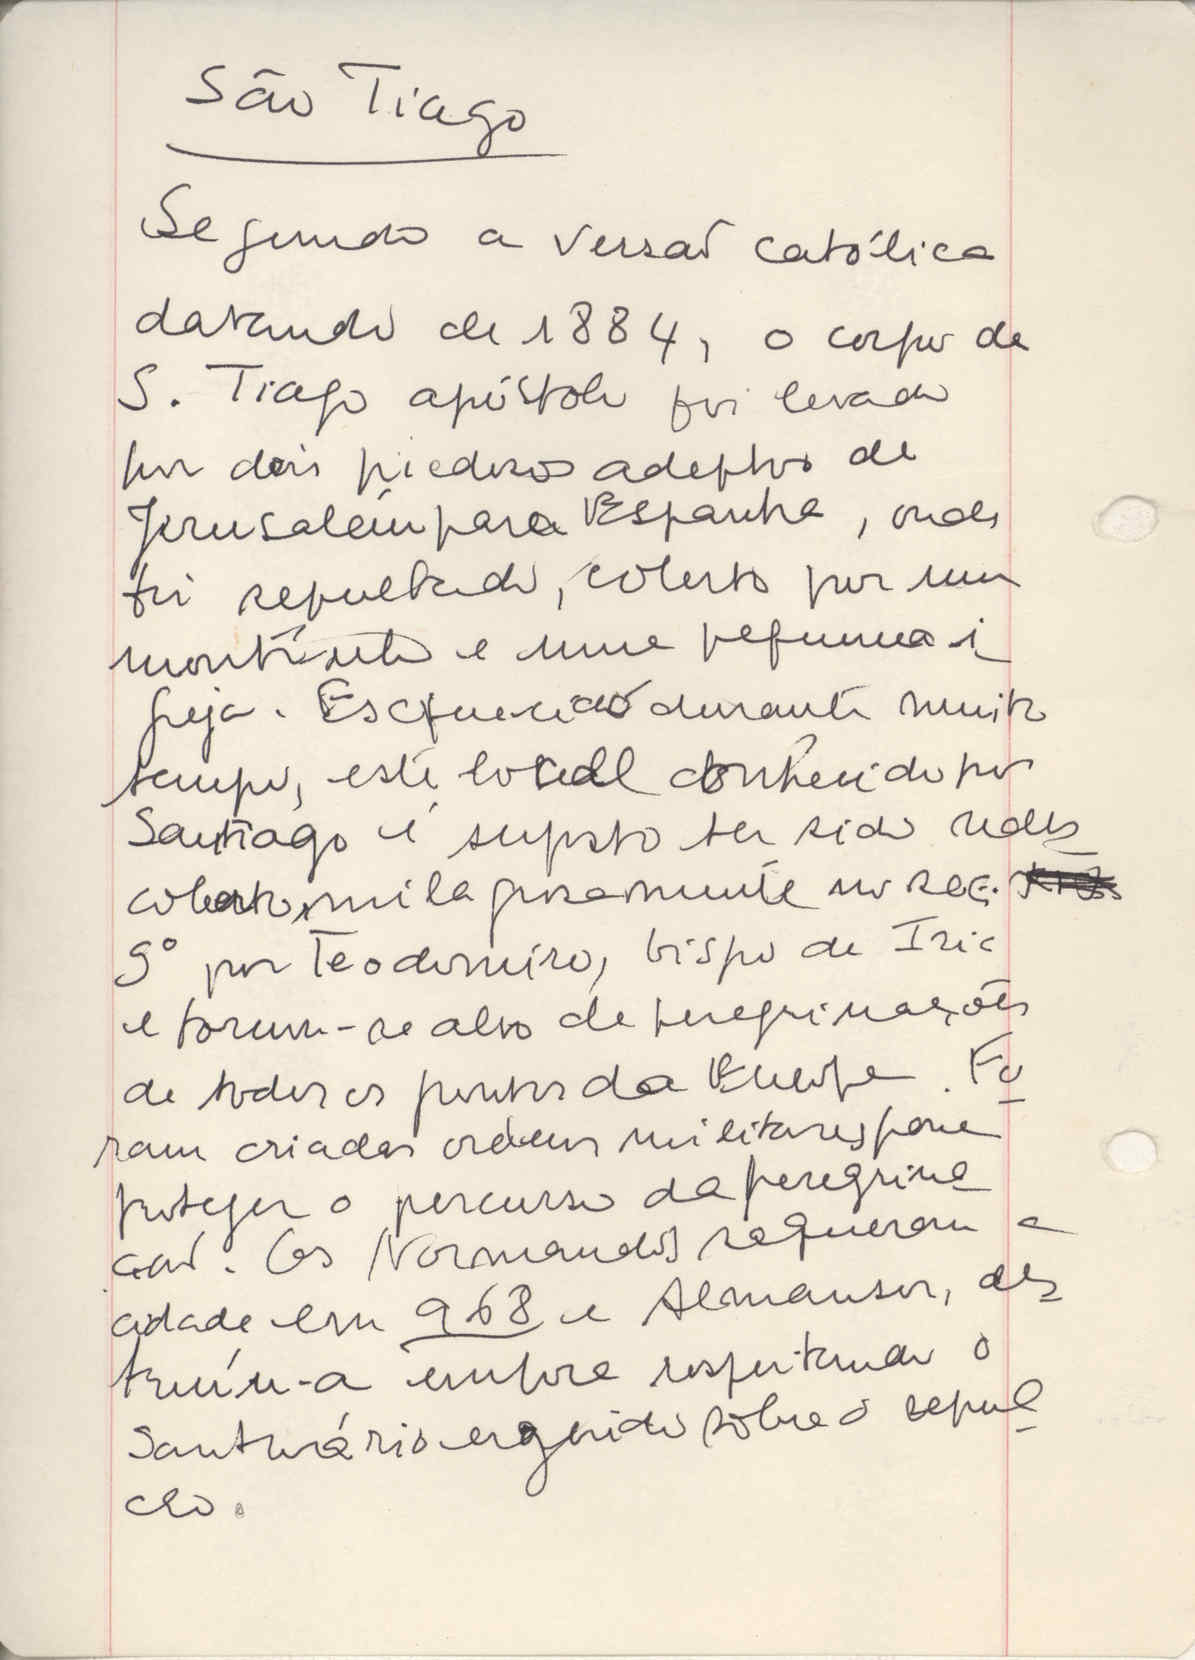 São Tiago
Segundo a versaõ católica
datando de 1884, o corpo de
S. Tiago apóstolo foi levado
por dois piedosos adeptos de
Jerusalém para Espanha, onde
foi sepultado, coberto por um
montículo e uma pequena i
greja. Esquecido durante muito
tempo, este local conhecido por
Santiago é suposto ter sido redes
coberto, milagrosamente no sec.
9º por Teodomiro, bispo de Iria
e tornou-se alvo de peregrinações
de todos os pontos da Europa. Fo
ram criadas ordens militares para
proteger o percurso da peregrina
çaõ. Os Normandos saquearam a
cidade em 968 e Almansor, des
truíu-a embora respeitando o
Santuário erguido sobre o sepul
cro.